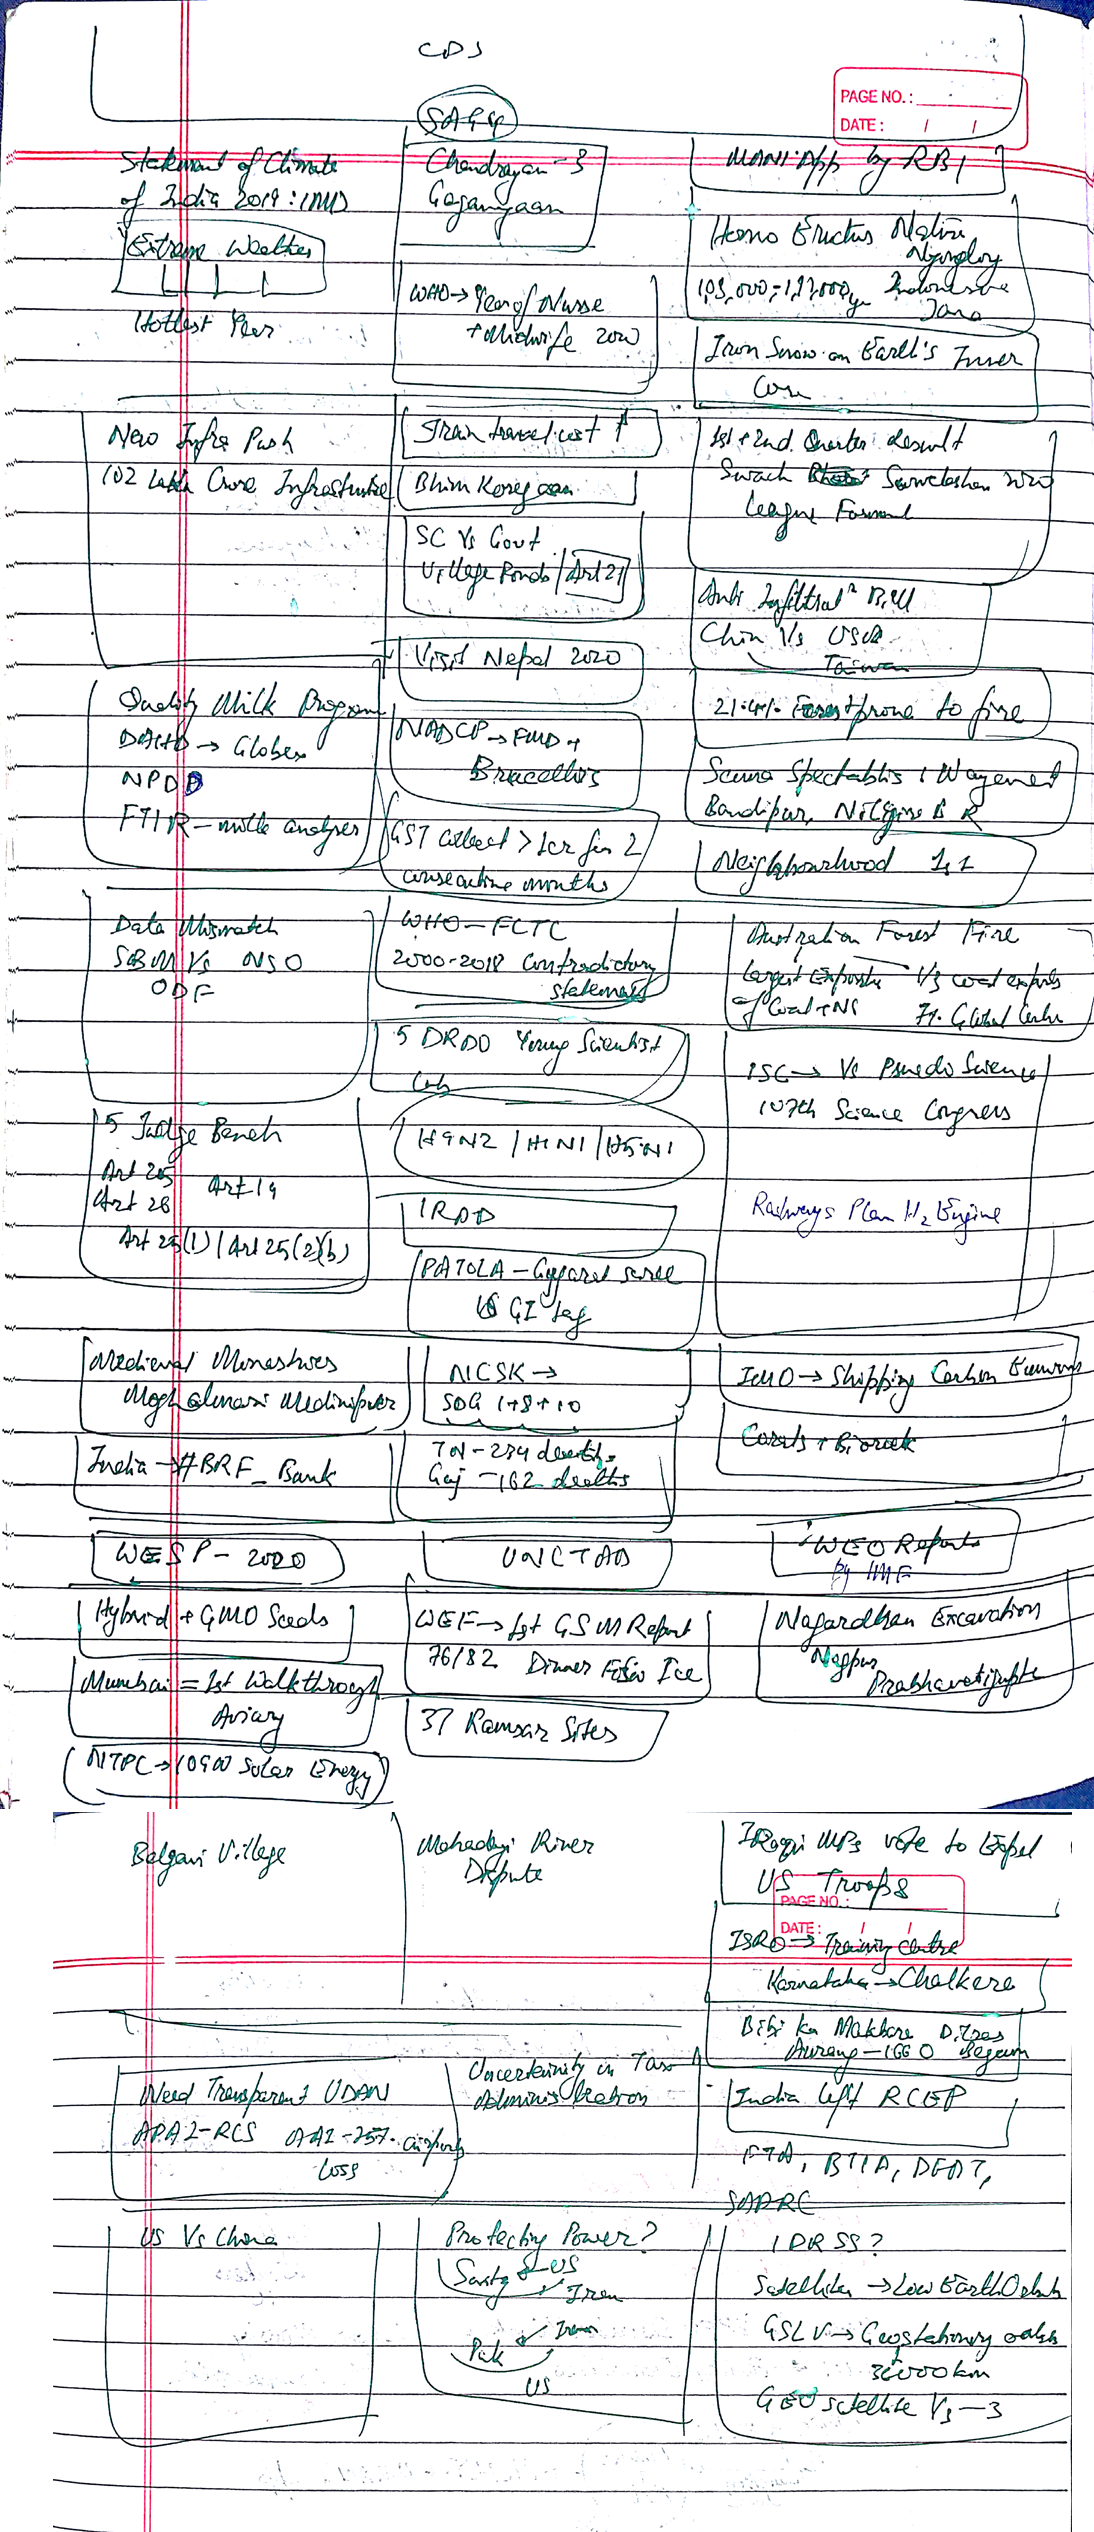 CDS
SAGY
PAGE NO.:
DATE: / /
Statement of Climate
of India 2019: IMD
Extreme Weather
Hottest Year
Chandrayan-3
Gaganyaan
MANI App by RBI
Homo Erectus Native
Indonesia
Java
WHO → Year of Nurse
+ Midwife 2020
Iron Snow on Earth's Inner
Core
New Infra Push
102 Lakh Crore Infrastructure
Train travel cost ↑
Bhim Koregaon
SC Vs Govt
Village Ponds / Art 21
1st + 2nd Quarter result
Swach Survekshan 2020
League Format
Anti Infiltratn Bill
Chin Vs USA
Taiwan
Visit Nepal 2020
Quality Milk Program
DAHD →
NPDD
FTIR - milk analyser
NADCP → FMD +
Brucellosis
GST collect > 1cr for 2
consecutive months
21.4% Forest prone to fire
Senna Spectabilis: Wayanad
Bandipur, Nilgiris B R
Neighbourhood 1st
Data Mismatch
SBM Vs NSO
ODF
WHO - FCTC
2000-2018 Contradictory
statements
Australian Forest Fire
Largest Exporter Vs coal exports
of Coal + NG 7% Global Carbon
5 DRDO Young Scientist
Lab
ISC → Vs Psuedo Science
107th Science Congress
Railways Plan H2 Engine
5 Judge Bench
Art 25
Art 26 Art 14
Art 25(1) / Art 25(2)(b)
H9N2 / H1N1 / H5N1
PATOLA - Gujarat
GI tag
Medieval Monestries
Moghalmari Medinipur
NICSK →
SDG 1+8+10
IMO → Shipping Carbon
Corals + Biorock
India → #BRF_Bank
TN - 234 deaths
Guj - 162 deaths
WESP - 2020
UNCTAD
WEO Reports
by IMF
Hybrid + GMO Seeds
WEF → 1st GSM Report
76/82
Nagardhan Excavation
Nagpur
Prabhavatigupta
Mumbai = 1st Walkthrough
Aviary
37 Ramsar Sites
NTPC → Solar Energy
Village
Mahadayi River
Dispute
Iraqi MPs vote to Expel
US Troops
PAGE NO.:
DATE: / /
ISRO → Training centre
Karnataka → Chalkere
Bibi ka Makbara
Aurang - 1660 Begum
Need Transparent UDAN
Loss
Uncertainity in Tax
Administration
India left RCEP
FTA, BTIA,
US Vs China
Protecting Power?
US
Iran
Pak Iran
US
IDRSS?
Satellites → Low Earth Orbits
GSLV → Geostationary orbits
36000 km
GEO satellite Vs - 3